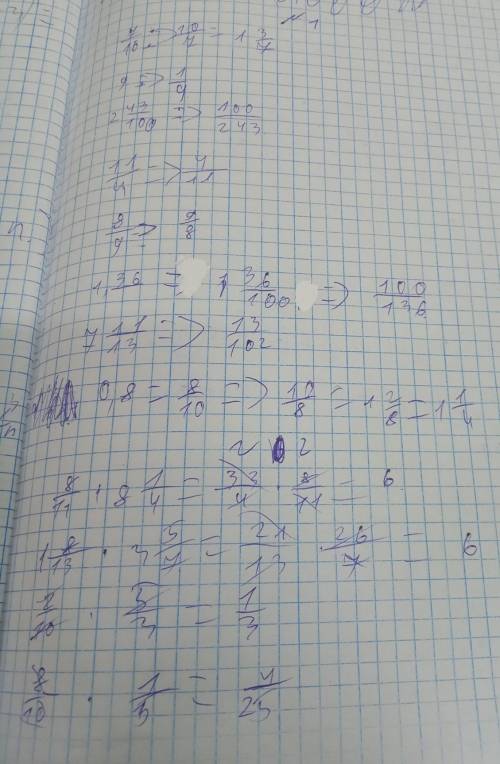 №1
7/10 => 10/7 = 1 3/7
9 => 1/9
2 43/100 => 100/243
11/4 => 4/11
8/9 => 9/8
1,36 = 1 36/100 => 100/136
7 11/13 => 13/102
0,8 = 8/10 => 10/8 = 1 2/8 = 1 1/4
№2
8/11 · 8 1/4 = 33/4 · 8/11 = 6
1 8/13 · 3 5/7 = 21/13 · 26/7 = 6
2/10 · 5/3 = 1/3
· 1/5 = 4/25